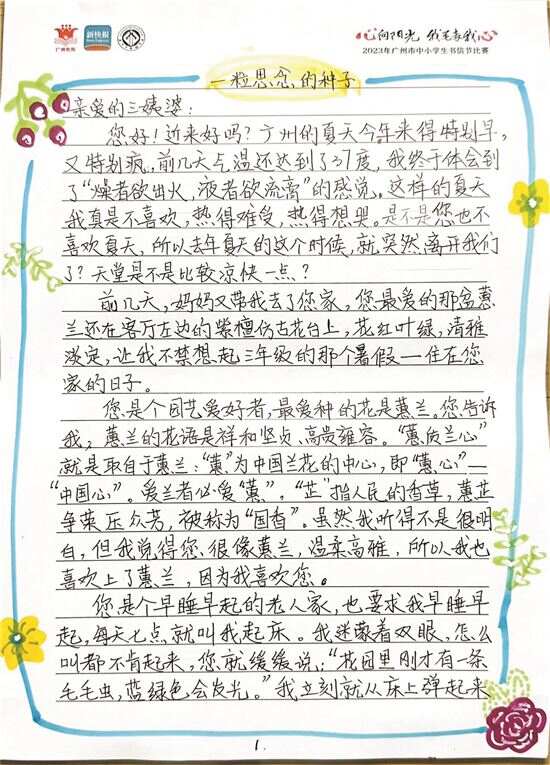 广州教育
新快报
心向阳光 我笔春我心
2023年广州市中小学生书信节比赛
一粒思念的种子
亲爱的三姨婆：
您好！近来好吗？广州的夏天今年来得特别早，
又特别疯，前几天气温还达到了37度，我终于体会到
了“燥者欲出火，液者欲流膏”的感觉。这样的夏天
我真是不喜欢，热得难受，热得想哭。是不是您也不
喜欢夏天，所以去年夏天的这个时候，就突然离开我们
了？天堂是不是比较凉快一点？
前几天，妈妈又带我去了您家，您最爱的那盆蕙
兰还在客厅左边的紫檀仿古花台上，花红叶绿，清雅
淡定，让我不禁想起三年级的那个暑假一住在您
家的日子。
您是个园艺爱好者，最爱种的花是蕙兰。您告诉
我，蕙兰的花语是祥和坚贞、高贵雍容。“蕙质兰心”
就是取自于蕙兰：“蕙”为中国兰花的中心，即“蕙心”—
“中国心”。爱兰者必爱“蕙”。“芷”指人民的香草，蕙芷
争荣压众芳，被称为“国香”。虽然我听得不是很明
白，但我觉得您很像蕙兰，温柔高雅，所以我也
喜欢上了蕙兰，因为我喜欢您。
您是个早睡早起的老人家，也要求我早睡早
起，每天七点就叫我起床。我迷蒙着双眼，怎么
叫都不肯起来，您就缓缓说：“花园里刚才有一条
毛毛虫，蓝绿色会发光。”我立刻就从床上弹起来
1.